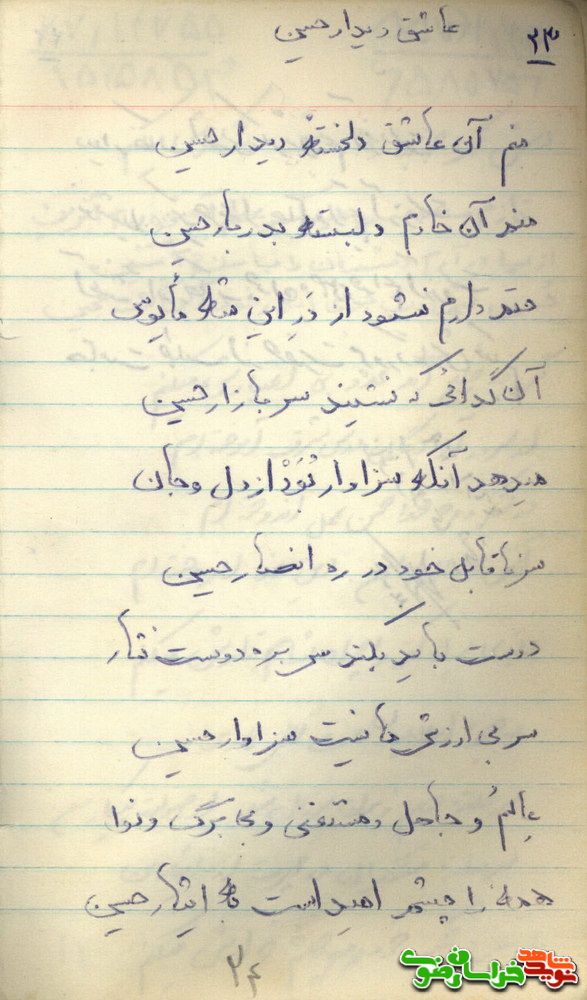 ۳۳
عاشق دیدار حسین
منم آن عاشق دلخسته دیدار حسین
منم آن خادم دلبسته بدربار حسین
حتم دارم نشود از در این خانه مأیوس
آن گدائی که نشیند سر بازار حسین
میدهد آنکه سزاوار بُوَدْ از دل و جان
سر ناقابل خود در ره انصار حسین
دوست باید بکند سر بره دوست نثار
سر بی ارزش ما نیست سزاوار حسین
عالمُ و جاهل و مستغنی و بی برگ و نوا
همه را چشم امید است به ایثار حسین
۳۴
نوید شاهد
خراسان رضوی